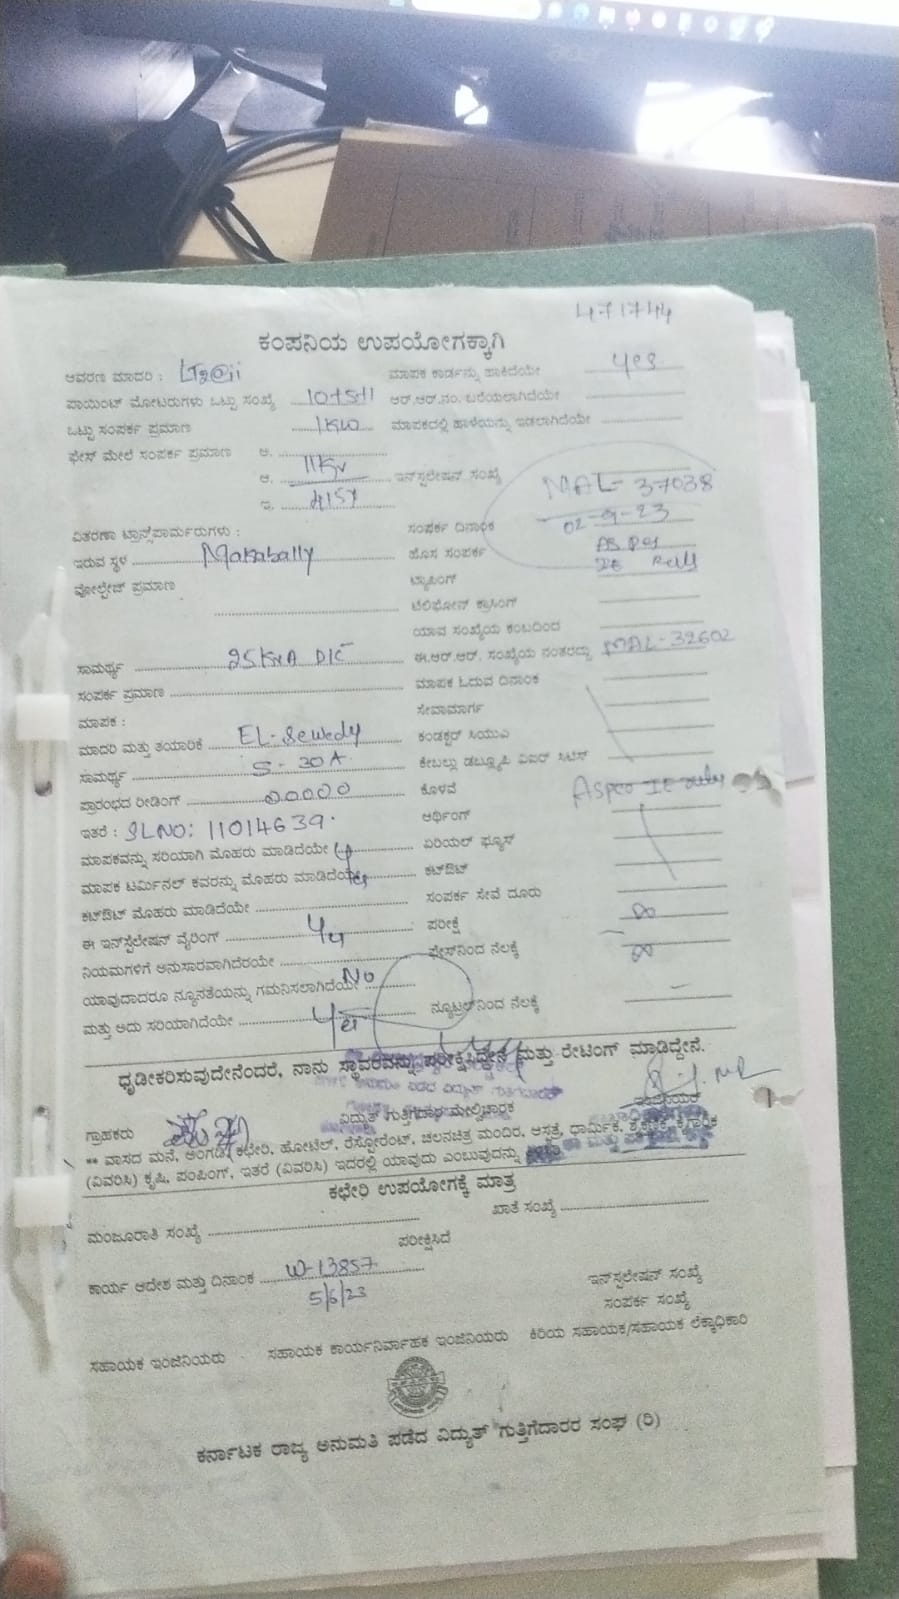 471744
ಕಂಪನಿಯ ಉಪಯೋಗಕ್ಕಾಗಿ
ಆವರಣ ಮಾದರಿ : LT2@ii ಮಾಪಕ ಕಾರ್ಡನ್ನು ಹಾಕಿದೆಯೇ yes
ಪಾಯಿಂಟ್ ಮೋಟರುಗಳು ಒಟ್ಟು ಸಂಖ್ಯೆ ಆರ್.ಆರ್.ನಂ. ಬರೆಯಲಾಗಿದೆಯೇ
ಒಟ್ಟು ಸಂಪರ್ಕ ಪ್ರಮಾಣ 1KW ಮಾಪಕದಲ್ಲಿ ಹಾಳೆಯನ್ನು ಇಡಲಾಗಿದೆಯೇ
ಫೇಸ್ ಮೇಲೆ ಸಂಪರ್ಕ ಪ್ರಮಾಣ ಅ.
ಆ. 11Kv ಇನ್‌ಸ್ಟಲೇಷನ್ ಸಂಖ್ಯೆ MAL-37038
ಇ. 415V
02-9-23
ವಿತರಣಾ ಟ್ರಾನ್ಸ್‌ಫಾರ್ಮರುಗಳು : ಸಂಪರ್ಕ ದಿನಾಂಕ
ಇರುವ ಸ್ಥಳ Makabally ಹೊಸ ಸಂಪರ್ಕ As per IE
ವೋಲ್ಟೇಜ್ ಪ್ರಮಾಣ ಟ್ಯಾಪಿಂಗ್
ಟೆಲಿಫೋನ್ ಕ್ರಾಸಿಂಗ್
ಯಾವ ಸಂಖ್ಯೆಯ ಕಂಬದಿಂದ
ಸಾಮರ್ಥ್ಯ 25KVA DTC ಈ.ಆರ್.ಆರ್. ಸಂಖ್ಯೆಯ ನಂತರದ್ದು MAL-32602
ಸಂಪರ್ಕ ಪ್ರಮಾಣ ಮಾಪಕ ಓದುವ ದಿನಾಂಕ
ಮಾಪಕ : ಸೇವಾಮಾರ್ಗ
ಮಾದರಿ ಮತ್ತು ತಯಾರಿಕೆ EL-Sewedy ಕಂಡಕ್ಟರ್ ಸಿಯುಎ
ಸಾಮರ್ಥ್ಯ 5-30A ಕೇಬಲ್ಲು ಡಬ್ಲ್ಯೂಪಿ ವಿಐಆರ್ ಸಿಟಿಸ್
ಪ್ರಾರಂಭದ ರೀಡಿಂಗ್ 00000 ಕೊಳವೆ
ಇತರೆ : SLNO: 11014639. ಅರ್ಥಿಂಗ್
ಮಾಪಕವನ್ನು ಸರಿಯಾಗಿ ಮೊಹರು ಮಾಡಿದೆಯೇ ಏರಿಯಲ್ ಫ್ಯೂಸ್
ಮಾಪಕ ಟರ್ಮಿನಲ್ ಕವರನ್ನು ಮೊಹರು ಮಾಡಿದೆಯೇ ಕಟ್‌ಔಟ್
ಕಟ್‌ಔಟ್ ಮೊಹರು ಮಾಡಿದೆಯೇ ಸಂಪರ್ಕ ಸೇವೆ ದೂರು
ಈ ಇನ್‌ಸ್ಟಲೇಷನ್ ವೈರಿಂಗ್ ಪರೀಕ್ಷೆ
ನಿಯಮಗಳಿಗೆ ಅನುಸಾರವಾಗಿದೆರಯೇ ಫೇಸ್‌ನಿಂದ ನೆಲಕ್ಕೆ
ಯಾವುದಾದರೂ ನ್ಯೂನತೆಯನ್ನು ಗಮನಿಸಲಾಗಿದೆಯೇ No
ಮತ್ತು ಅದು ಸರಿಯಾಗಿದೆಯೇ Yes ನ್ಯೂಟ್ರಲ್‌ನಿಂದ ನೆಲಕ್ಕೆ
ಧೃಡೀಕರಿಸುವುದೇನೆಂದರೆ, ನಾನು ಸ್ಥಾವರವನ್ನು ಪರೀಕ್ಷಿಸಿದ್ದೇನೆ ಮತ್ತು ರೇಟಿಂಗ್ ಮಾಡಿದ್ದೇನೆ.
ಗ್ರಾಹಕರು ವಿದ್ಯುತ್ ಗುತ್ತಿಗೆದಾರ ಮೇಲ್ವಿಚಾರಕ ಇಂಜಿನಿಯರ್
** ವಾಸದ ಮನೆ, ಅಂಗಡಿ, ಕಛೇರಿ, ಹೋಟೆಲ್, ರೆಸ್ಟೋರೆಂಟ್, ಚಲನಚಿತ್ರ ಮಂದಿರ, ಆಸ್ಪತ್ರೆ, ಧಾರ್ಮಿಕ, ಶೈಕ್ಷಣಿಕ, ಕೈಗಾರಿಕ
(ವಿವರಿಸಿ) ಕೃಷಿ, ಪಂಪಿಂಗ್, ಇತರೆ (ವಿವರಿಸಿ) ಇದರಲ್ಲಿ ಯಾವುದು ಎಂಬುವುದನ್ನು
ಕಛೇರಿ ಉಪಯೋಗಕ್ಕೆ ಮಾತ್ರ
ಮಂಜೂರಾತಿ ಸಂಖ್ಯೆ ಖಾತೆ ಸಂಖ್ಯೆ
ಪರೀಕ್ಷಿಸಿದೆ
ಕಾರ್ಯ ಆದೇಶ ಮತ್ತು ದಿನಾಂಕ W-13857
5/6/23
ಇನ್‌ಸ್ಟಲೇಷನ್ ಸಂಖ್ಯೆ
ಸಂಪರ್ಕ ಸಂಖ್ಯೆ
ಸಹಾಯಕ ಇಂಜಿನಿಯರು ಸಹಾಯಕ ಕಾರ್ಯನಿರ್ವಾಹಕ ಇಂಜಿನಿಯರು ಕಿರಿಯ ಸಹಾಯಕ/ಸಹಾಯಕ ಲೆಕ್ಕಾಧಿಕಾರಿ
ಕರ್ನಾಟಕ ರಾಜ್ಯ ಅನುಮತಿ ಪಡೆದ ವಿದ್ಯುತ್ ಗುತ್ತಿಗೆದಾರರ ಸಂಘ (ರಿ)